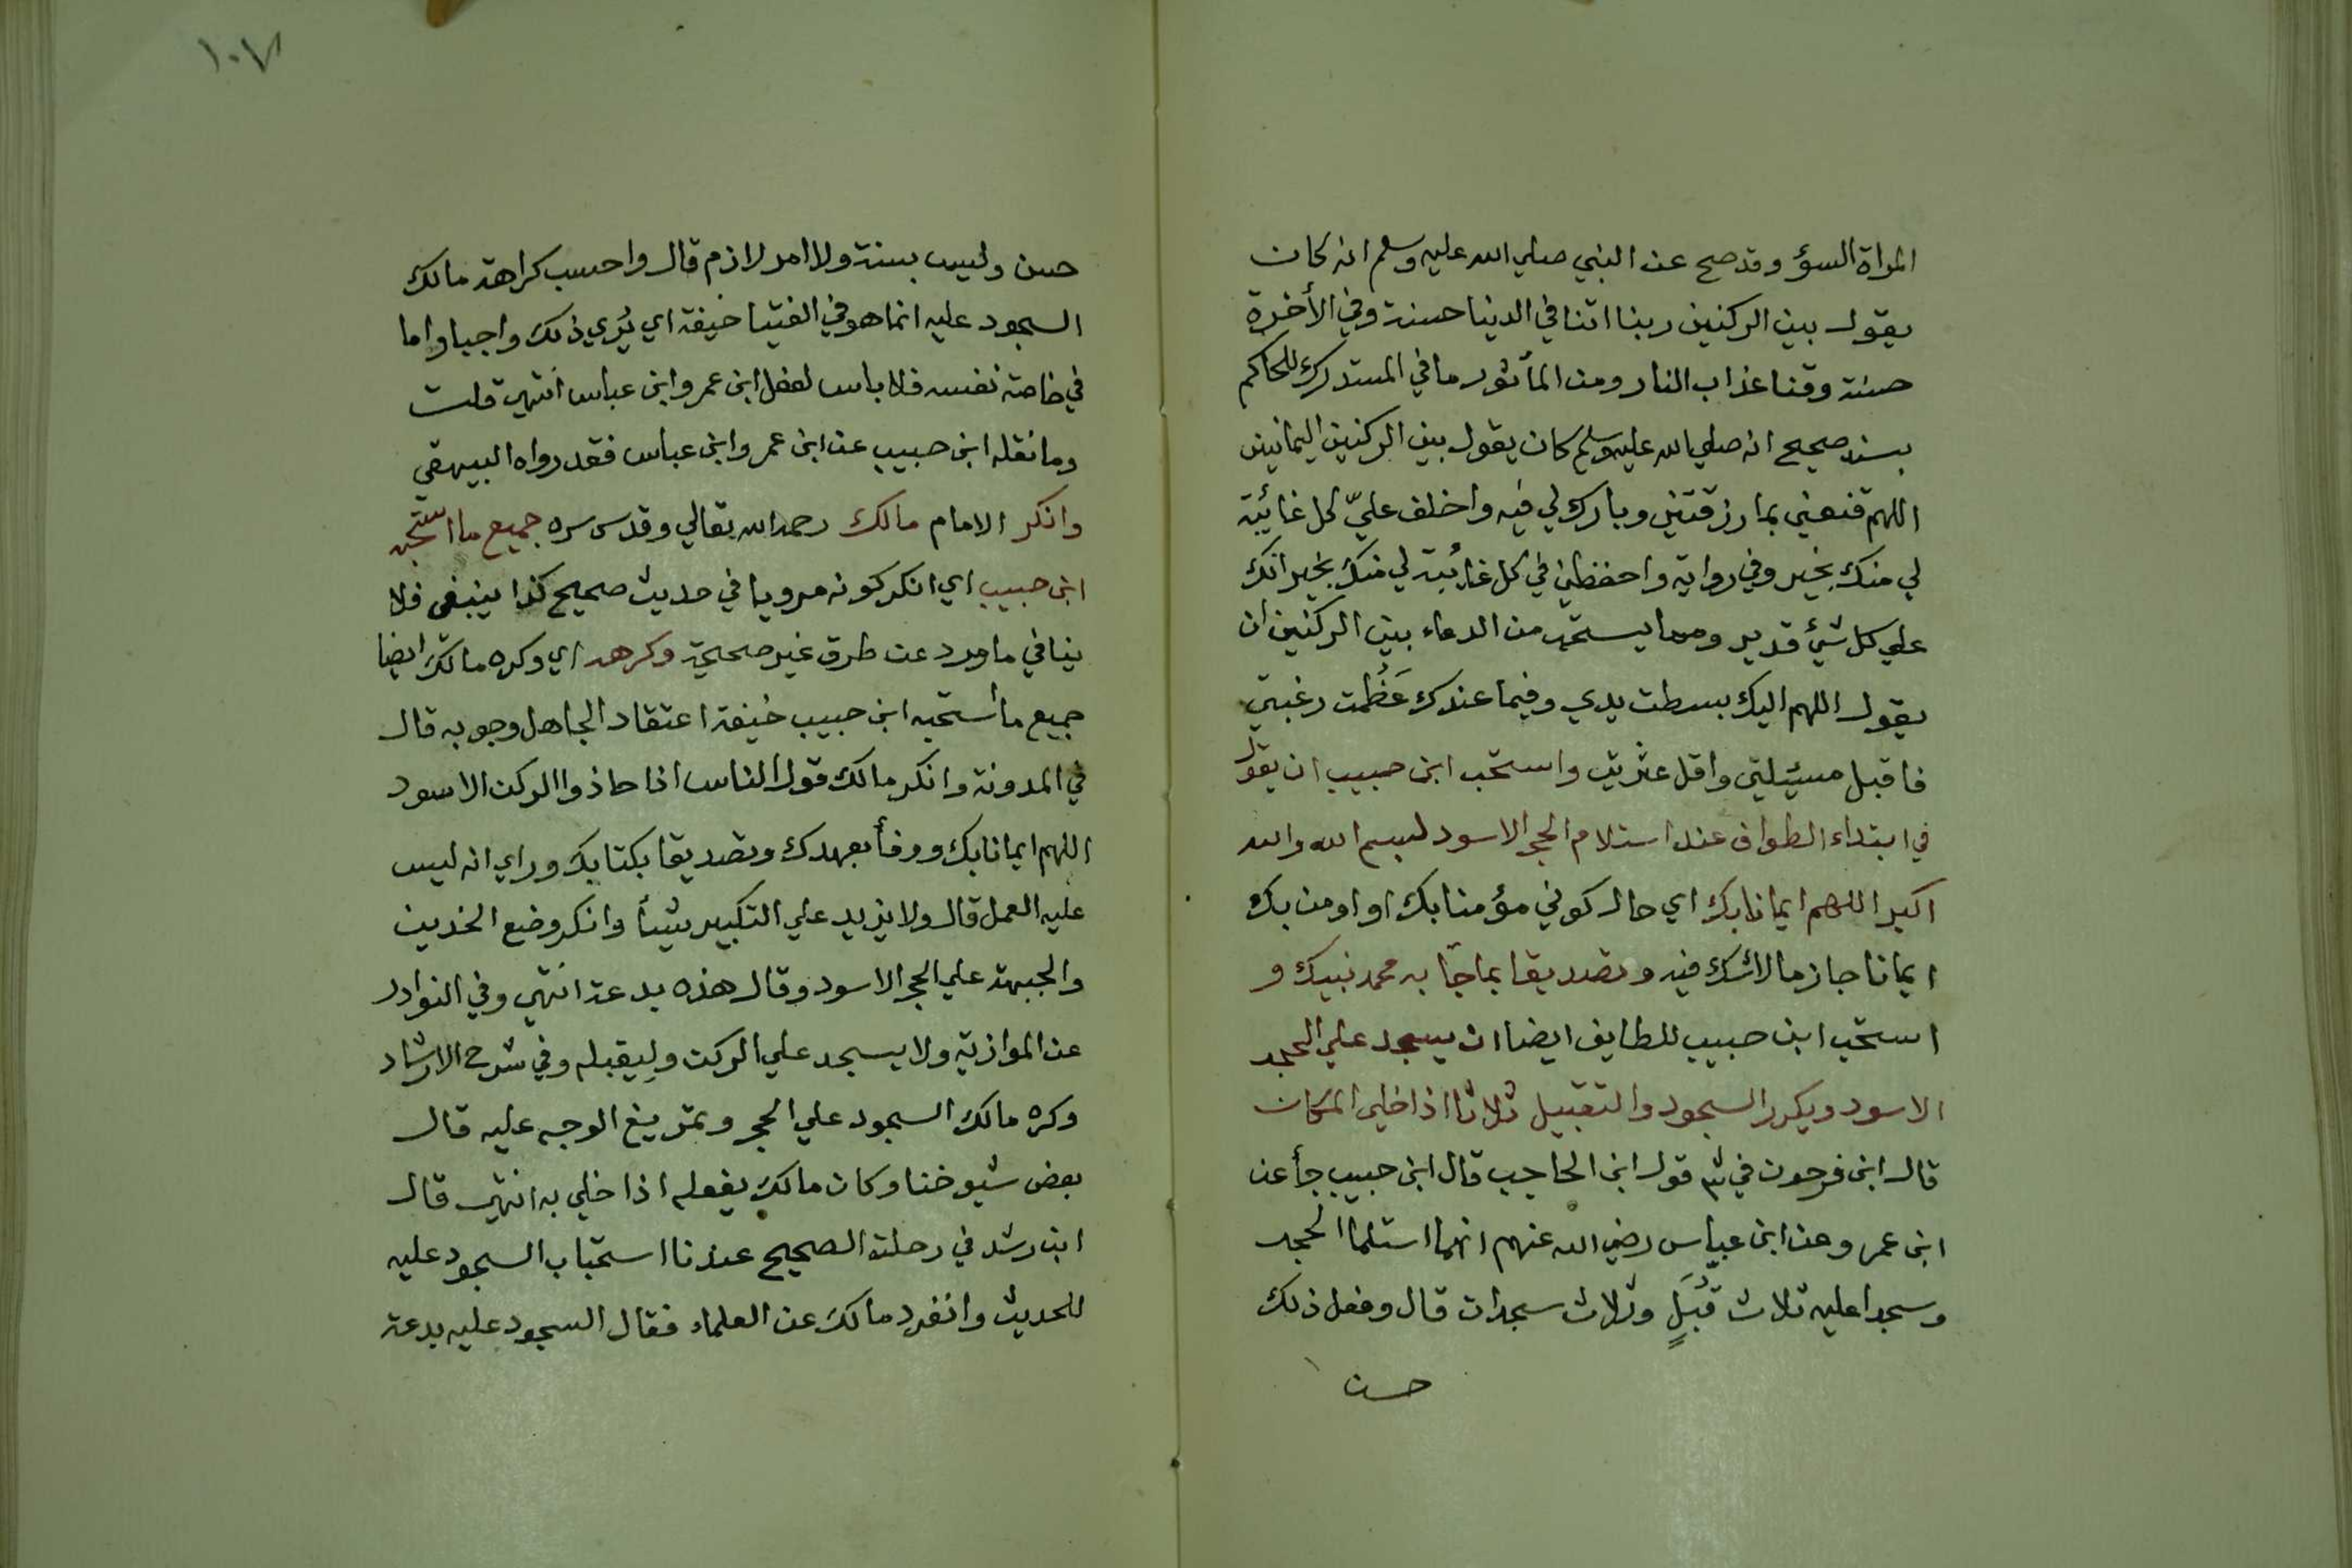 المراة السؤ وقد صح عن النبي صلي الله عليه وسلم انه كان
يقول بين الركنين ربنا اتنا في الدنيا حسنة وفي الأخرة
حسنة وقنا عذاب النار ومن المأثور ما في المستدرك للحاكم
بسند صحيح انه صلي الله عليه وسلم كان يقول بين الركنين اليمانيين
اللهم قنعني بما رزقتني وبارك لي فيه واخلف عليّ كل غائبة
لي منك بخير وفي رواية واحفظني في كل غائبة لي منك بخير انك
علي كل شيئ قدير ومما يستحب من الدعاء بين الركنين ان
يقول اللهم اليك بسطت يدي وفيما عندك عَظُمت رغبتي
فاقبل مسئيلتي واقل عثرتي واستحب ابن حبيب ان يقول
في ابتداء الطواف عند استلام الحجر الاسود لبسم الله والله
اكبر اللهم ايمانا بك اي حال كوني مؤمنا بك او اومن بك
ايمانا جازما لاشك فيه وتصديقا بما جآ به محمد نبيك و
استحب ابن حبيب للطايف ايضا ان يسجد علي الحجر
الاسود ويكرر السجود والتقبيل ثلاثا اذا خلي المكان
قال ابن فرحون في ش قول ابن الحاجب قال ابن حبيب جأ عن
ابن عمر وعن ابن عباس رضي الله عنهم انهما استلما الحجر
وسجدا عليه ثلاث قُبَلٍ وثلاث سجدات قال وفعل ذلك
حسن
١٠٧
حسن وليس بسنة ولا امر لازم قال واحسب كراهة مالك
السجود عليه انما هو في الفتيا خيفة اي يُري ذلك واجبا واما
في خاصة نفسه فلا باس لفعل ابن عمر وابن عباس انتهي قلت
وما نقله ابن حبيب عن ابن عمر وابن عباس فقد رواه البيهقي
وانكر الامام مالك رحمه الله تعالي وقدس سره جميع ما استحبه
ابن حبيب اي انكر كونه مرويا في حديث صحيح كذا ينبغي فلا
ينافي ما ورد عن طرق غير صحيحة وكرهه اي وكره مالك ايضا
جميع ما أستحبه ابن حبيب خيفة اعتقاد الجاهل وجوبه قال
في المدونة وانكر مالك قول الناس اذا حاذوا الركن الاسود
اللهم ايمانا بك ووفأ بعهدك وتصديقا بكتابك وراي انه ليس
عليه العمل قال ولا يزيد علي التكبير شيئأ وانكر وضع الخدين
والجبهة علي الحجر الاسود وقال هذه بدعة انتهي وفي النوادر
عن الموازية ولا يسجد علي الركن وليقبله وفي شرح الارشاد
وكره مالك السجود علي الحجر وتمريغ الوجه عليه قال
بعض شيوخنا وكان مالك يفعله اذا خلي به انتهي قال
ابن رشد في رحلته الصحيح عندنا استحباب السجود عليه
للحديث وانفرد مالك عن العلماء فقال السجود عليه بدعة